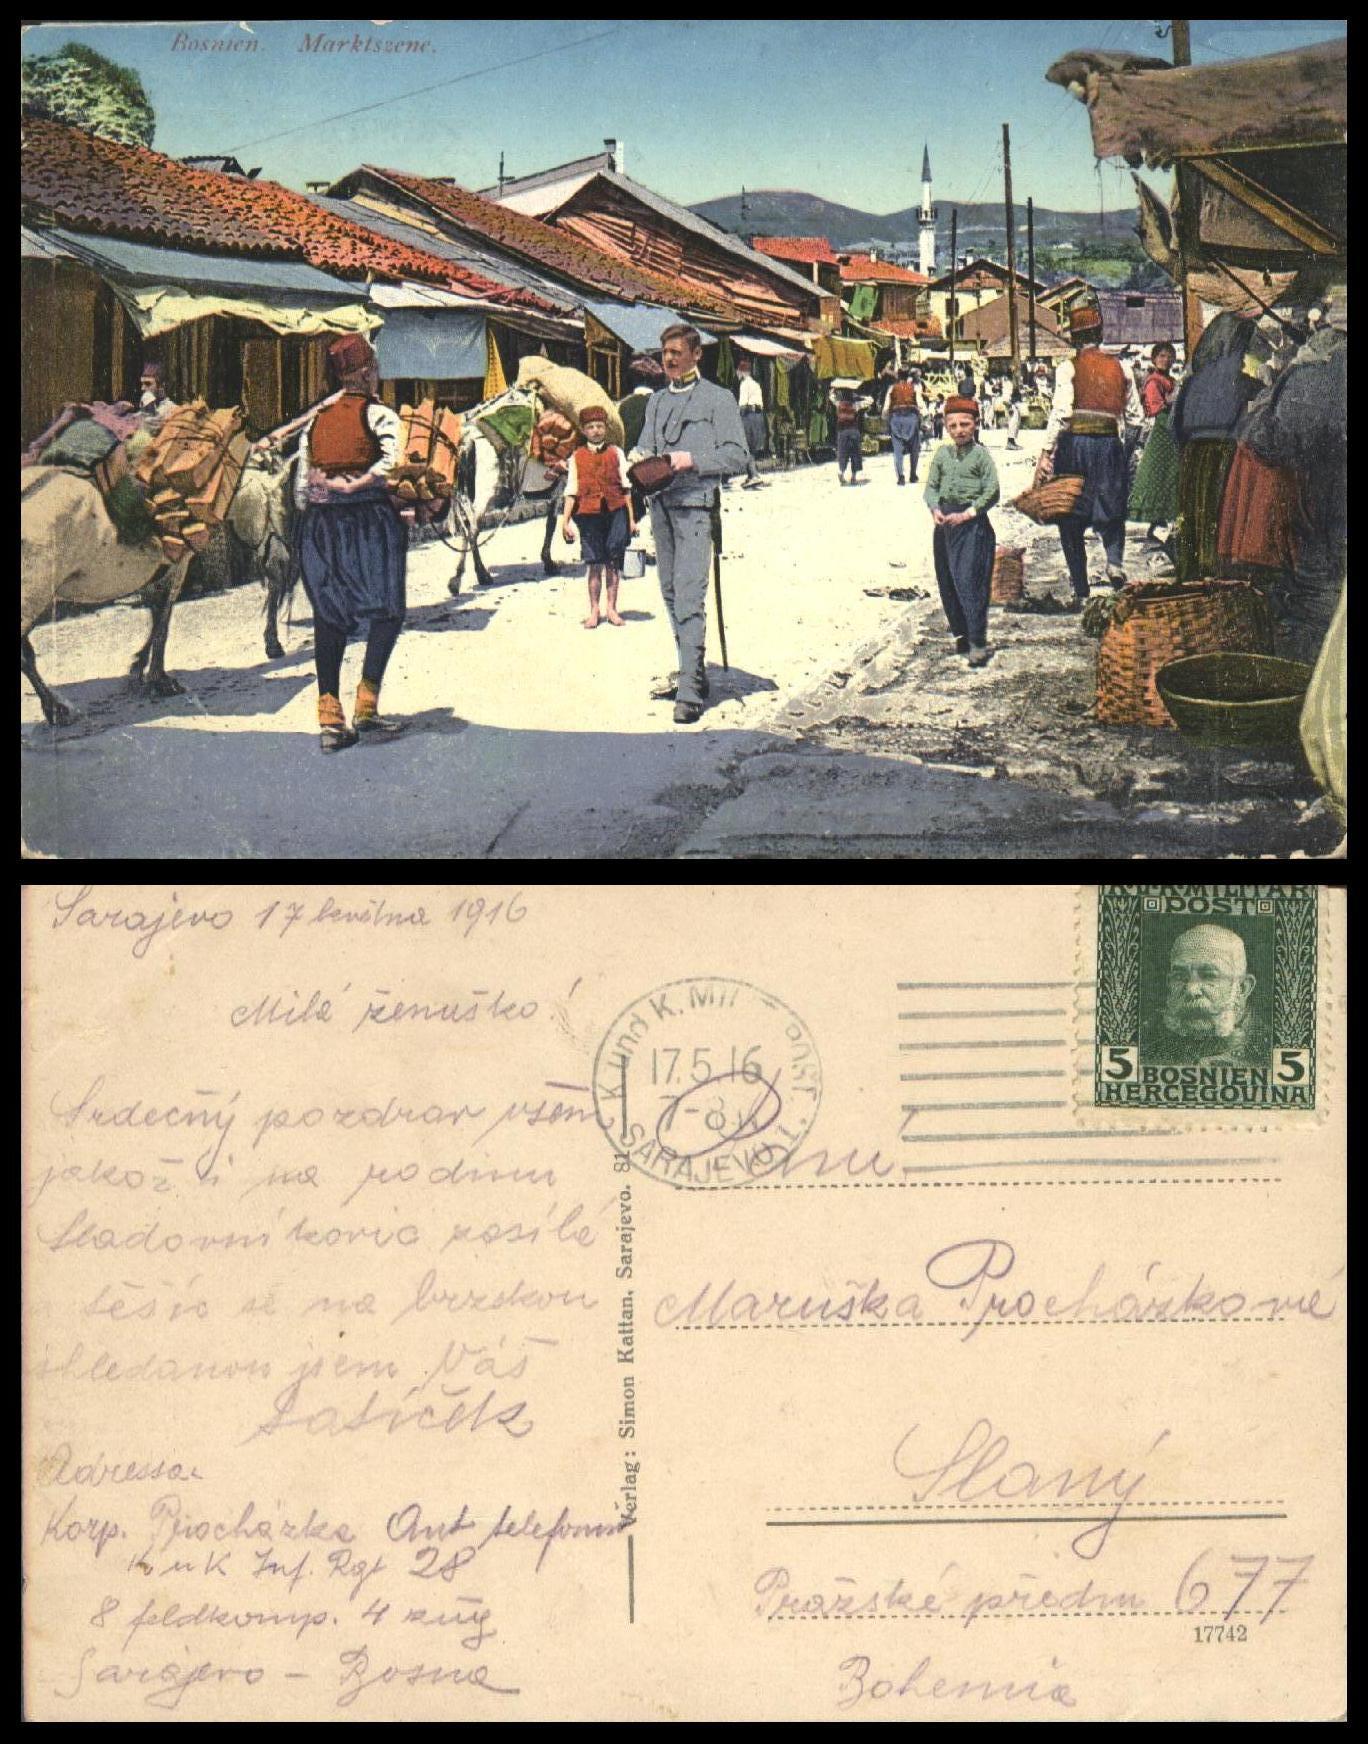 Bosnien. Marktszene.
Sarajevo 17 května 1916
Milá ženuško!
Srdečný pozdrav všem
jakož i na rodinu
zasílá
těšíc se na brzskou
shledanou jsem Váš
Tatíček
Adressa
Korp. Procházka Ant telefonist
K u K Inf. Rgt 28
8 feldkomp. 4 zug
Sarajevo - Bosna
Verlag: Simon Kattan, Sarajevo. 81
K. und K. Mil. Post.
17.5.16
7-8
SARAJEVO 1
K.u.K. MILITÄR
POST
5 5
BOSNIEN
HERCEGOVINA
Maruška Procházková
Slaný
Pražské předm 677
17742
Bohemia